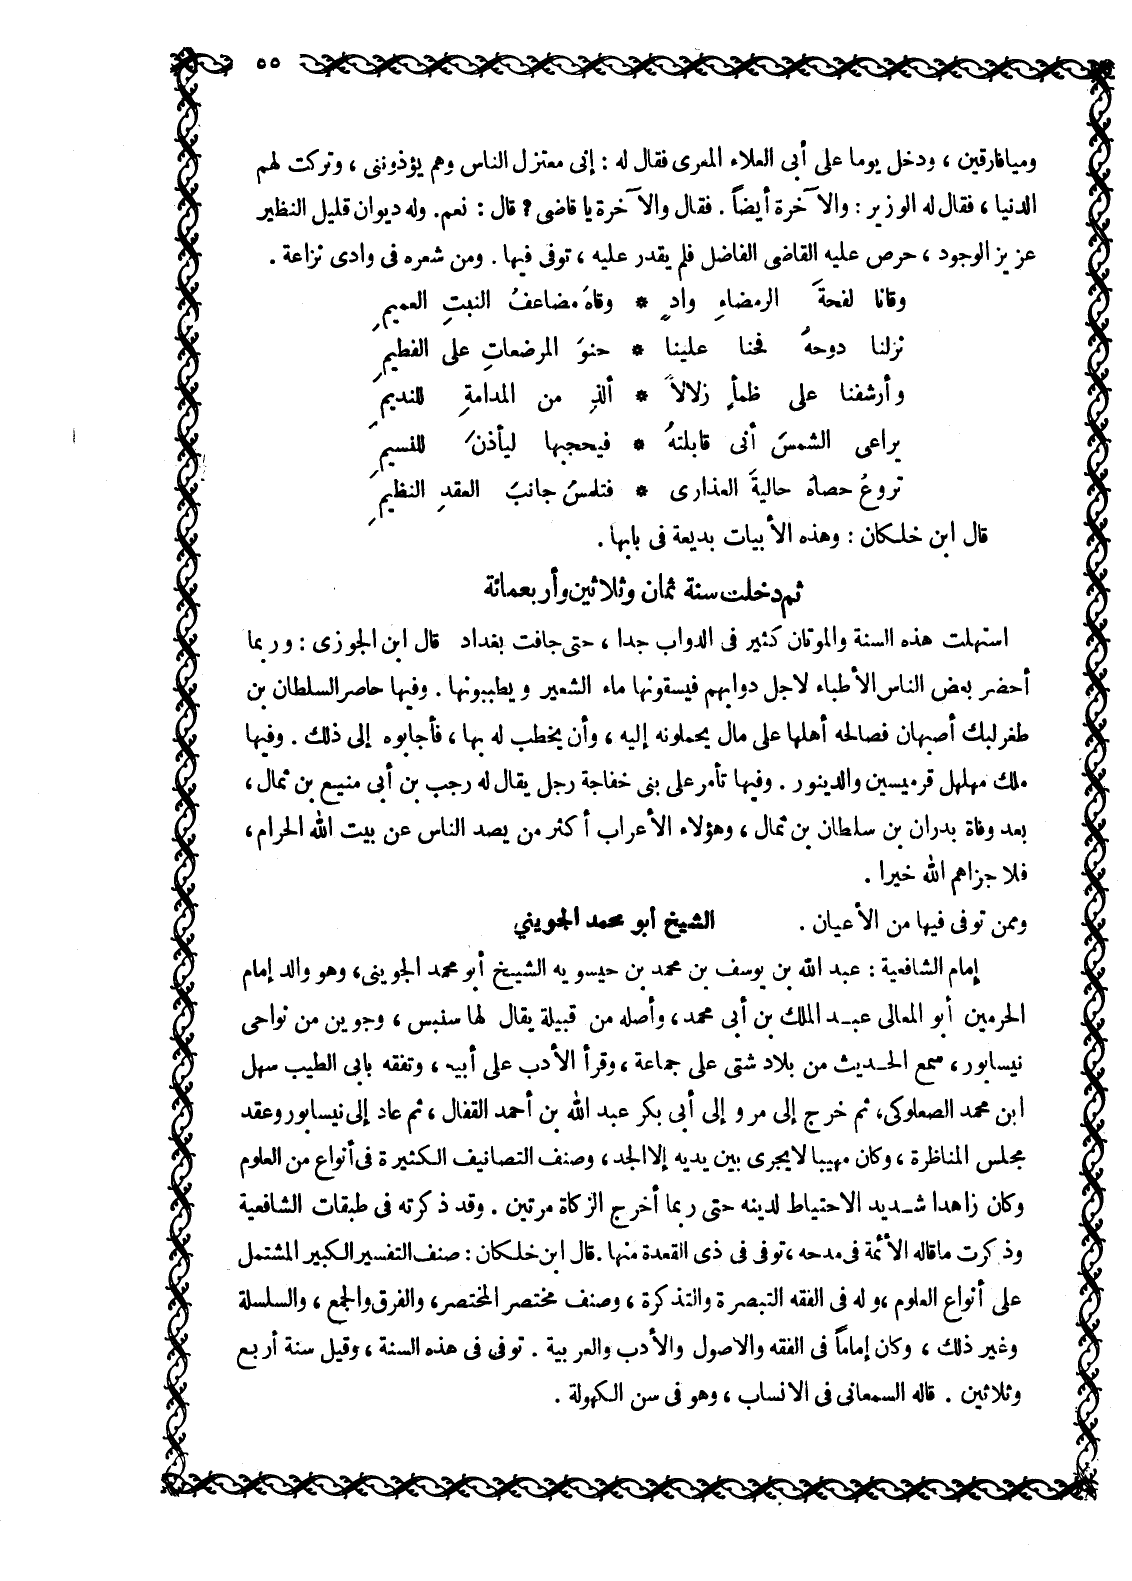 ٥٥
وميافارقين ، ودخل يوما على أبى العلاء المعرى فقال له : إنى معتزل الناس وهم يؤذوننى ، وتركت لهم
الدنيا ، فقال له الوزير : والآخرة أيضاً . فقال والآخرة يا قاضى ? قال : نعم. وله ديوان قليل النظير
عزيز الوجود ، حرص عليه القاضى الفاضل فلم يقدر عليه ، توفى فيها . ومن شعره فى وادى نزاعة .
وقانا لفحةَ الرمضاءِ وادٍ * وقاهُ مضاعفُ النبتِ العميمِ
نزلنا دوحهُ فحنا علينا * حنوَ المرضعاتِ على الفطيمِ
وأرشفنا على ظمأٍ زلالاً * ألذِ من المدامةِ للنديمِ
يراعى الشمسَ أنى قابلتهُ * فيحجبها ليأذنَ للنسيمِ
تروعُ حصاهُ حاليةَ العذارى * فتلمسُ جانبَ العقدِ النظيمِ
قال ابن خلكان : وهذه الأبيات بديعة فى بابها .
ثم دخلت سنة ثمان وثلاثين وأربعمائة
استهلت هذه السنة والموتان كثير فى الدواب جدا ، حتى جافت بغداد قال ابن الجوزى : وربما
أحضر بعض الناس الأطباء لاجل دوابهم فيسقونها ماء الشعير ويطببونها . وفيها حاصر السلطان بن
طغرلبك أصبهان فصالحه أهلها على مال يحملونه إليه ، وأن يخطب له بها ، فأجابوه إلى ذلك . وفيها
ملك مهلهل قرميسين والدينور . وفيها تأمر على بنى خفاجة رجل يقال له رجب بن أبى منيع بن ثمال ،
بعد وفاة بدران بن سلطان بن ثمال ، وهؤلاء الأعراب أكثر من يصد الناس عن بيت الله الحرام ،
فلا جزاهم الله خيرا .
وممن توفى فيها من الأعيان . الشيخ أبو محمد الجويني
إمام الشافعية : عبد الله بن يوسف بن محمد بن حيسويه الشيخ أبو محمد الجوينى ، وهو والد إمام
الحرمين أبو المعالى عبد الملك بن أبى محمد ، وأصله من قبيلة يقال لها سنبس ، وجوين من نواحى
نيسابور ، سمع الحديث من بلاد شتى على جماعة ، وقرأ الأدب على أبيه ، وتفقه بابى الطيب سهل
ابن محمد الصعلوكى، ثم خرج إلى مرو إلى أبى بكر عبد الله بن أحمد القفال ، ثم عاد إلى نيسابور وعقد
مجلس المناظرة ، وكان مهيبا لا يجرى بين يديه إلا الجد ، وصنف التصانيف الكثيرة فى أنواع من العلوم
وكان زاهدا شديد الاحتياط لدينه حتى ربما أخرج الزكاة مرتين . وقد ذكرته فى طبقات الشافعية
وذكرت ما قاله الأئمة فى مدحه ، توفى فى ذى القعدة منها . قال ابن خلكان : صنف التفسير الكبير المشتمل
على أنواع العلوم ، وله فى الفقه التبصرة والتذكرة ، وصنف مختصر المختصر، والفرق والجمع ، والسلسلة
وغير ذلك ، وكان إماماً فى الفقه والاصول والأدب والعربية . توفى فى هذه السنة ، وقيل سنة أربع
وثلاثين . قاله السمعانى فى الانساب ، وهو فى سن الكهولة .